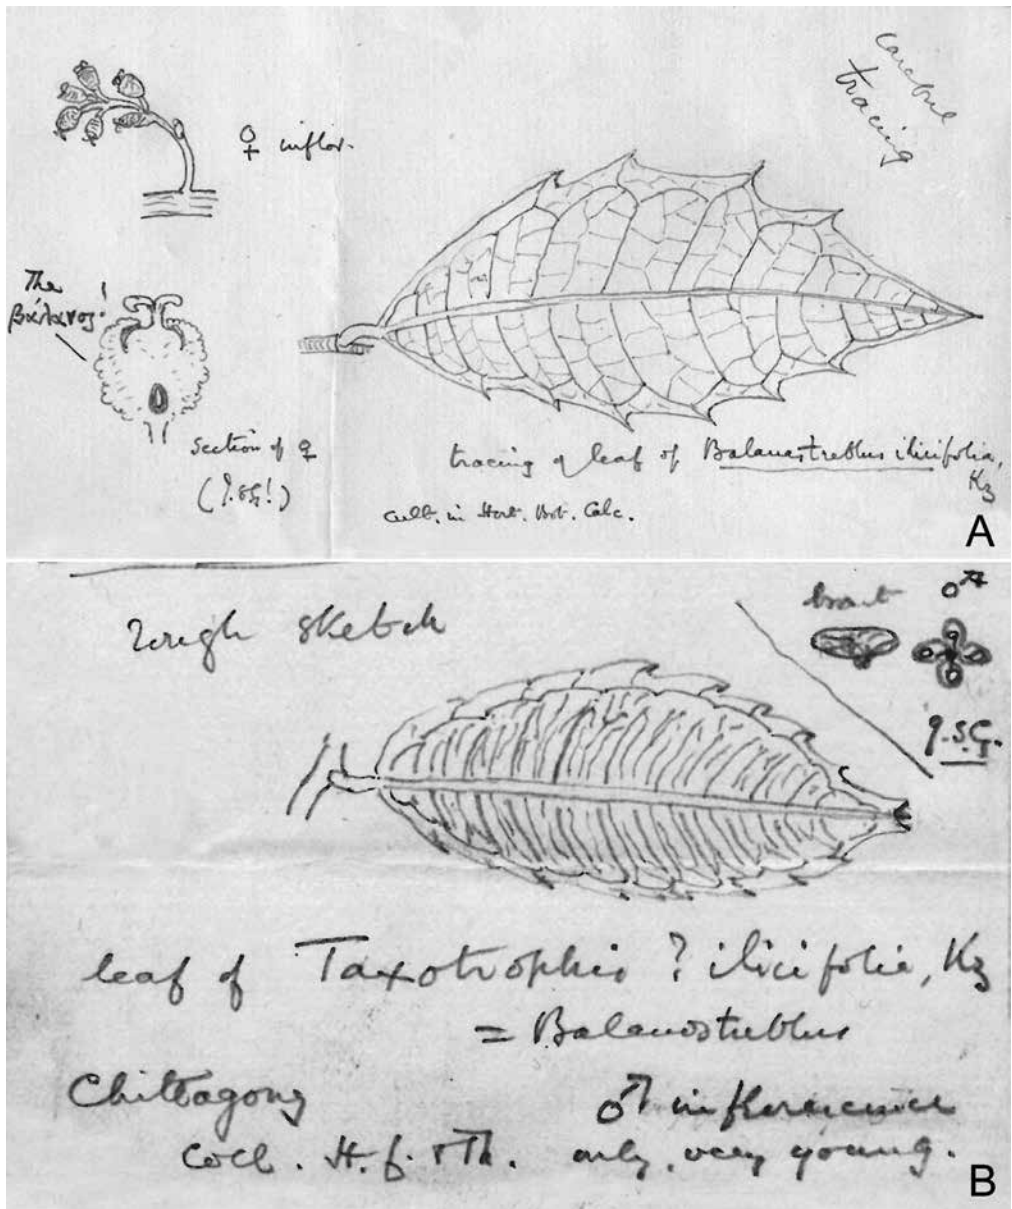 careful
tracing
♀ inflor.
The
βάλανος!
section of ♀
tracing of leaf of Balanostreblus ilicifolia,
Kz
cult. in Hort. Bot. Calc.
A
rough sketch
bract ♂
leaf of Taxotrophis ? ilicifolia, Kz
= Balanostreblus
Chittagong
♂ inflorescence
Coll. H.f. & Th. only, very young.
B